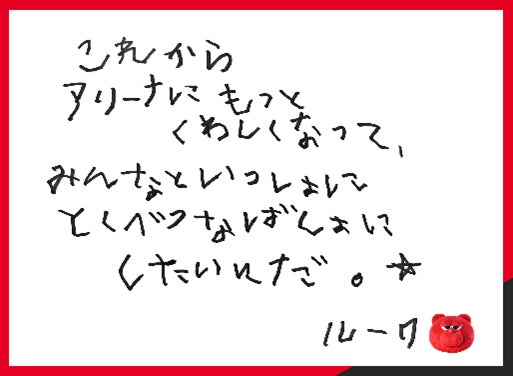 これから
アリーナにもっと
くわしくなって、
みんなといっしょに
とくべつなばしょに
したいんだ。☆
ルーク